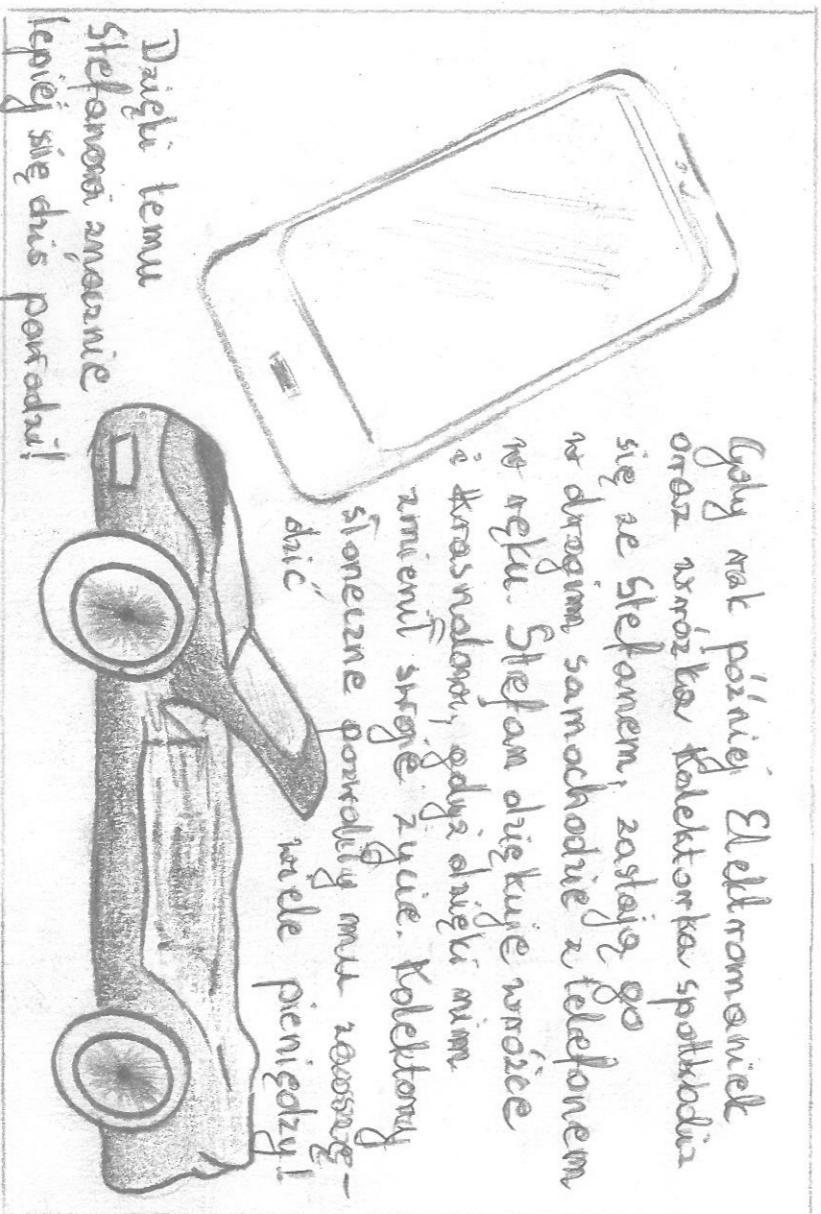 Gdy rok później Elektromaniek
oraz wróżka Kolektorka
się ze Stefanem, zastają go
w drogim samochodzie z telefonem
w ręku. Stefan dziękuje wróżce
i krasnalowi, gdyż dzięki nim
zmienił swoje życie. Kolektory
słoneczne pozwoliły mu zaoszczę-
dzić wiele pieniędzy!
Dzięki temu
Stefanowi znacznie
lepiej się dziś powodzi!